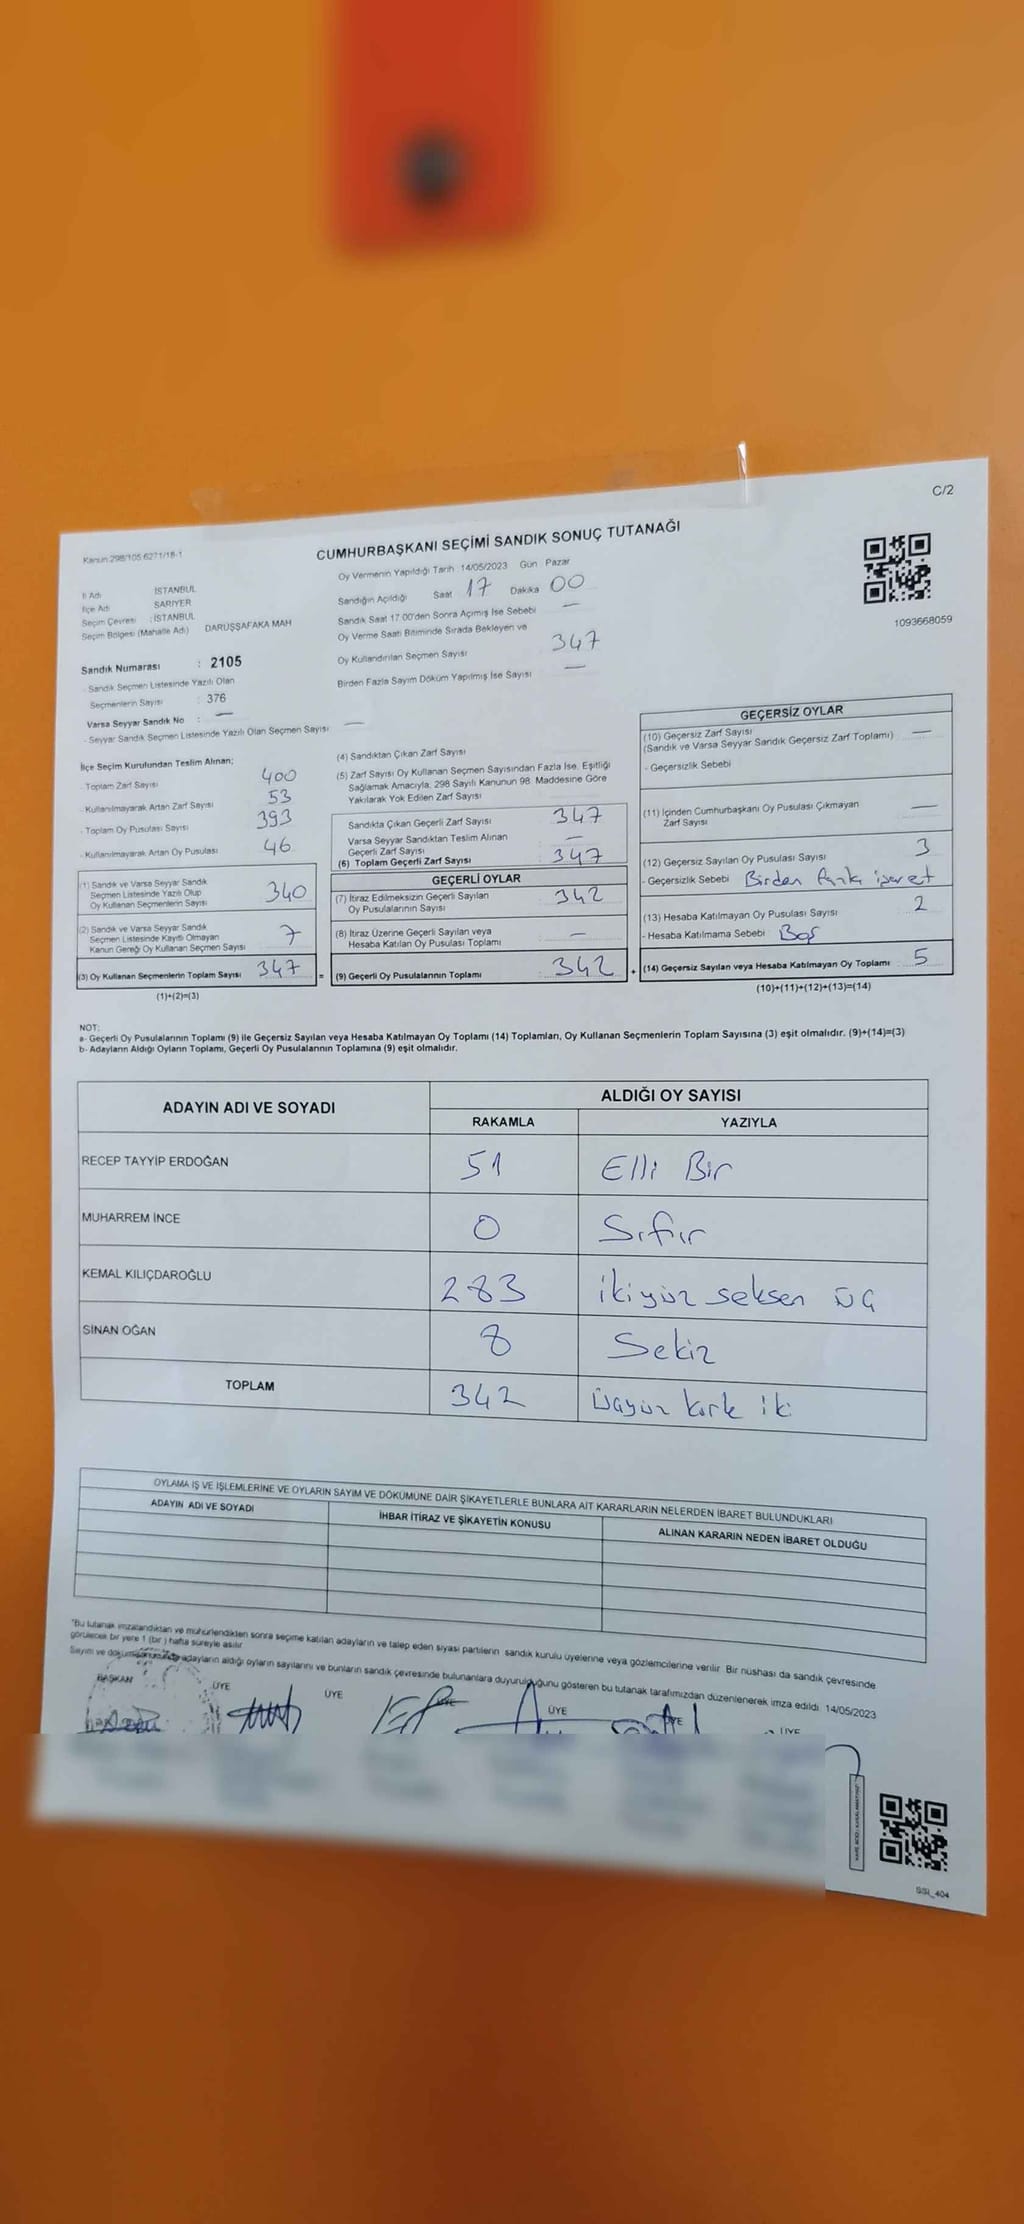 C/2
Kanun:298/105 6271/18-1
CUMHURBAŞKANI SEÇİMİ SANDIK SONUÇ TUTANAĞI
1093668059
İl Adı İSTANBUL
İlçe Adı SARIYER
Seçim Çevresi : İSTANBUL
Seçim Bölgesi (Mahalle Adı) DARUŞŞAFAKA MAH
Sandık Numarası : 2105
- Sandık Seçmen Listesinde Yazılı Olan
Seçmenlerin Sayısı : 376
Varsa Seyyar Sandık No : —
- Seyyar Sandık Seçmen Listesinde Yazılı Olan Seçmen Sayısı —
Oy Vermenin Yapıldığı Tarih : 14/05/2023 Gün : Pazar
Sandığın Açıldığı Saat 17 Dakika 00
Sandık Saat 17.00'den Sonra Açımış İse Sebebi —
Oy Verme Saati Bitiminde Sırada Bekleyen ve
Oy Kullandırılan Seçmen Sayısı 347
Birden Fazla Sayım Döküm Yapılmış İse Sayısı —
İlçe Seçim Kurulundan Teslim Alınan;
- Toplam Zarf Sayısı 400
- Kullanılmayarak Artan Zarf Sayısı 53
- Toplam Oy Pusulası Sayısı 393
- Kullanılmayarak Artan Oy Pusulası 46
(1) Sandık ve Varsa Seyyar Sandık
Seçmen Listesinde Yazılı Olup
Oy Kullanan Seçmenlerin Sayısı 340
(2) Sandık ve Varsa Seyyar Sandık
Seçmen Listesinde Kayıtlı Olmayan
Kanun Gereği Oy Kullanan Seçmen Sayısı 7
(3) Oy Kullanan Seçmenlerin Toplam Sayısı 347 =
(1)+(2)=(3)
(4) Sandıktan Çıkan Zarf Sayısı
(5) Zarf Sayısı Oy Kullanan Seçmen Sayısından Fazla İse, Eşitliği
Sağlamak Amacıyla; 298 Sayılı Kanunun 98. Maddesine Göre
Yakılarak Yok Edilen Zarf Sayısı
Sandıkta Çıkan Geçerli Zarf Sayısı 347
Varsa Seyyar Sandıktan Teslim Alınan
Geçerli Zarf Sayısı —
(6) Toplam Geçerli Zarf Sayısı : 347
GEÇERLİ OYLAR
(7) İtiraz Edilmeksizin Geçerli Sayılan
Oy Pusulalarının Sayısı : 342
(8) İtiraz Üzerine Geçerli Sayılan veya
Hesaba Katılan Oy Pusulası Toplamı : —
(9) Geçerli Oy Pusulalarının Toplamı : 342 +
GEÇERSİZ OYLAR
(10) Geçersiz Zarf Sayısı —
(Sandık ve Varsa Seyyar Sandık Geçersiz Zarf Toplamı)
- Geçersizlik Sebebi
(11) İçinden Cumhurbaşkanı Oy Pusulası Çıkmayan
Zarf Sayısı —
(12) Geçersiz Sayılan Oy Pusulası Sayısı 3
- Geçersizlik Sebebi Birden fazla işaret
(13) Hesaba Katılmayan Oy Pusulası Sayısı 2
- Hesaba Katılmama Sebebi Boş
(14) Geçersiz Sayılan veya Hesaba Katılmayan Oy Toplamı 5
(10)+(11)+(12)+(13)=(14)
NOT:
a- Geçerli Oy Pusulalarının Toplamı (9) ile Geçersiz Sayılan veya Hesaba Katılmayan Oy Toplamı (14) Toplamları, Oy Kullanan Seçmenlerin Toplam Sayısına (3) eşit olmalıdır. (9)+(14)=(3)
b- Adayların Aldığı Oyların Toplamı, Geçerli Oy Pusulalarının Toplamına (9) eşit olmalıdır.
ADAYIN ADI VE SOYADI ALDIĞI OY SAYISI
RAKAMLA YAZIYLA
RECEP TAYYİP ERDOĞAN 51 Elli Bir
MUHARREM İNCE 0 Sıfır
KEMAL KILIÇDAROĞLU 283 ikiyüz seksen üç
SİNAN OĞAN 8 Sekiz
TOPLAM 342 üçyüz kırk iki
OYLAMA İŞ VE İŞLEMLERİNE VE OYLARIN SAYIM VE DÖKÜMÜNE DAİR ŞİKAYETLERLE BUNLARA AİT KARARLARIN NELERDEN İBARET BULUNDUKLARI
ADAYIN ADI VE SOYADI İHBAR İTİRAZ VE ŞİKAYETİN KONUSU ALINAN KARARIN NEDEN İBARET OLDUĞU
"Bu tutanak imzalandıktan ve mühürlendikten sonra seçime katılan adayların ve talep eden siyasi partilerin sandık kurulu üyelerine veya gözlemcilerine verilir. Bir nüshası da sandık çevresinde
görülecek bir yere 1 (bir ) hafta süreyle asılır
Sayım ve döküm adayların aldığı oyların sayılarını ve bunların sandık çevresinde bulunanlara duyurulduğunu gösteren bu tutanak tarafımızdan düzenlenerek imza edildi. 14/05/2023
BAŞKAN ÜYE ÜYE ÜYE ÜYE ÜYE ÜYE
SSI_404